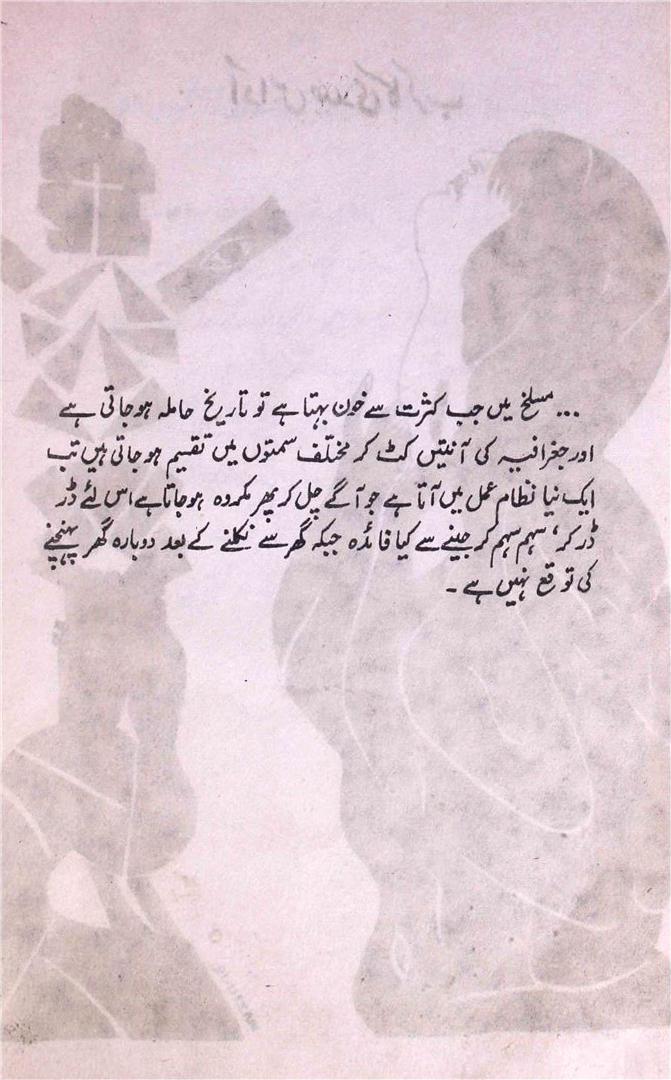 ... مسلخ میں جب کثرت سے خون بہتا ہے تو تاریخ حاملہ ہو جاتی ہے
اور جغرافیہ کی آنتیں کٹ کر مختلف سمتوں میں تقسیم ہو جاتی ہیں تب
ایک نیا نظام عمل میں آتا ہے جو آگے چل کر پھر مکروہ ہو جاتا ہے اس لئے ڈر
ڈر کر، سہم سہم کر جینے سے کیا فائدہ جبکہ گھر سے نکلنے کے بعد دوبارہ گھر پہنچنے
کی توقع نہیں ہے ۔